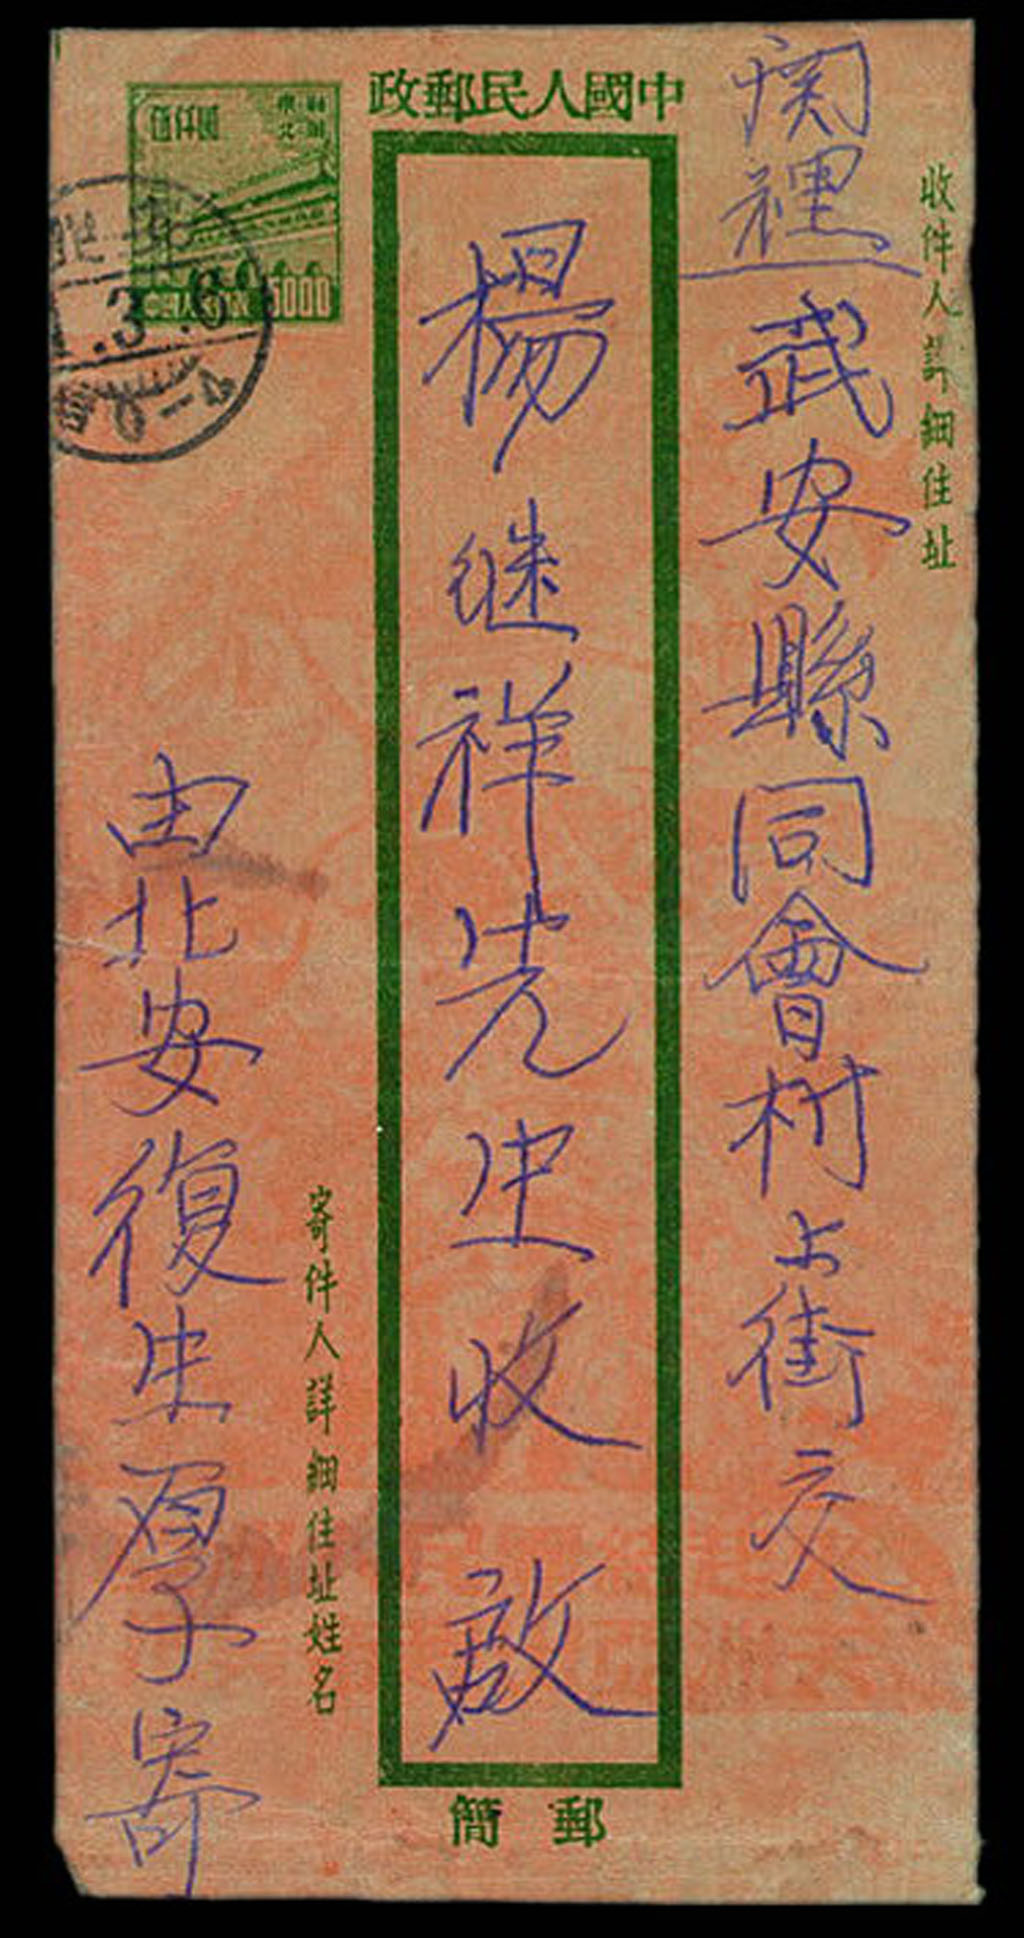 中國人民郵政
收件人詳細住址
関裡
武安縣同會村上街交
楊継祥先生收啟
寄件人詳細住址姓名
由北安復生厚寄
東北
5000
.3.6
郵簡